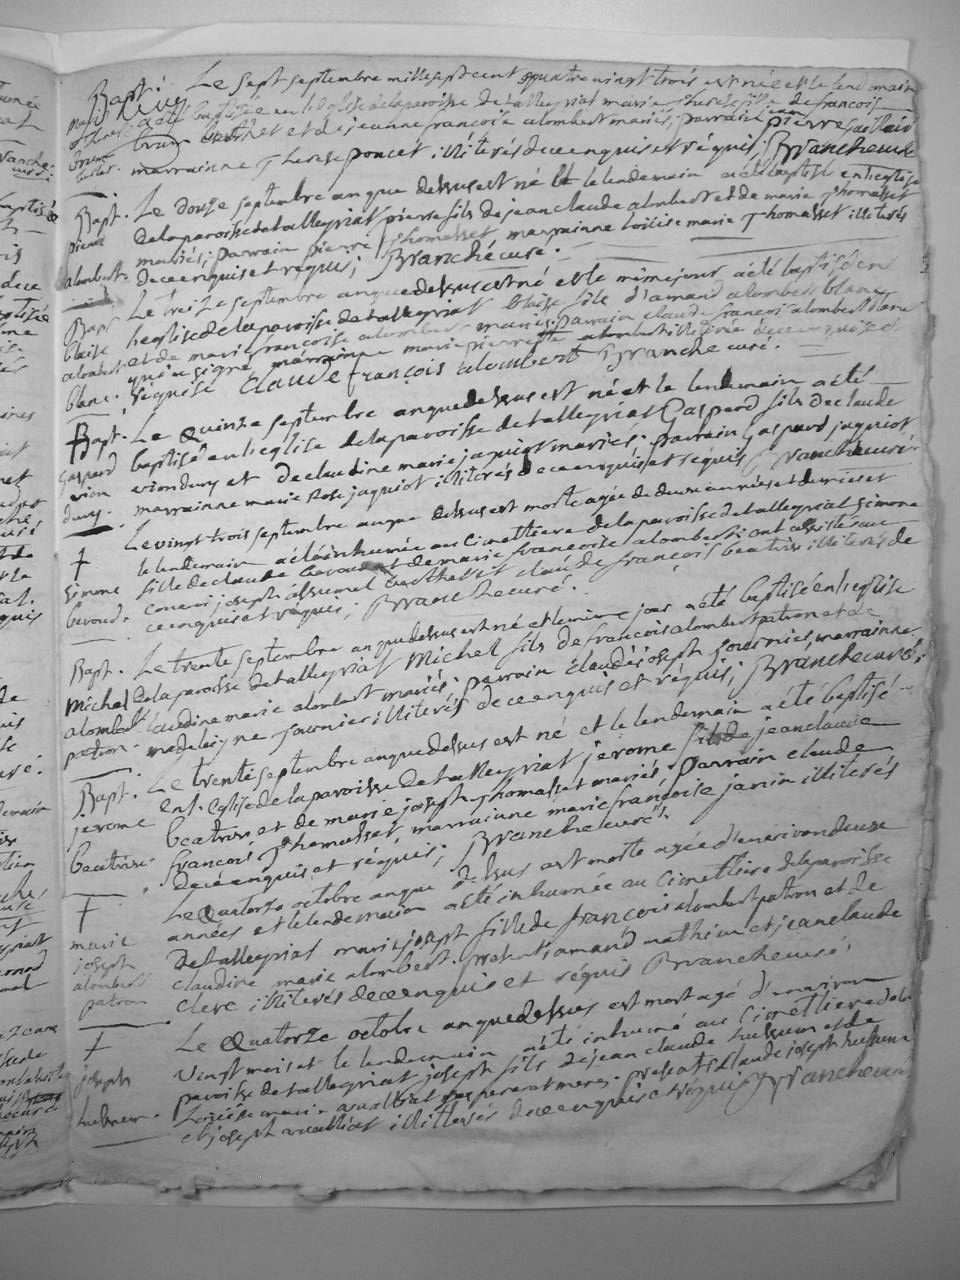 Bapt. Le sept septembre mille sept cent quatre vingt trois est née et le lendemain
a été baptisée en l'eglise de la paroisse de talleyriat marie therese fille de francois
brun et de jeanne francoise alombert mariés, parrain pierre
marrainne therese poncet illiterés de ce enquis et requis, Branche curé
Bapt. Le douze septembre an que dessus est né et le lendemain a été baptisé en l'eglise
pierre de la paroisse de talleyriat pierre fils de jean claude alombert et de marie thomasset
mariés; parrain pierre thomasset marrainne marie thomasset illiterés
alombert de ce enquis et requis; Branche curé.
Bapt. Le treize septembre an que dessus est né et le même jour a été baptisé en
blaise l'eglise de la paroisse de talleyriat blaise fils d'amand alombert blanc
alombert et de marie francoise alombert mariés. parrain claude francois alombert blanc
qui a signé marrainne marie pierrette alombert illiterée de ce enquise et
blanc. requise Claude françois alombert Branche curé.
Bapt. Le Quinze septembre an que dessus est né et le lendemain a été
gaspard baptisé en l'eglise de la paroisse de talleyriat Gaspard fils de claude
vion vion duny et de claudine marie jaquiot mariés. parrain Gaspard jaquiot
duny. marrainne marie rose jaquiot illiterés de ce enquis et requis Branche curé.
† Le vingt trois septembre an que dessus est morte agée de deux années et demie et
simone le lendemain a été inhumée au cimettiere de la paroisse de talleyriat simone
fille de claude bevoud et de marie francoise alombert; ont assisté au
bevoud. convoi joseph assumel berthet et claude françois beatrix illiterés de
ce enquis et requis; Branche curé.
Bapt. Le trente septembre an que dessus est né et le même jour a été baptisé en l'eglise
Michel de la paroisse de talleyriat Michel fils de francois alombert patron et de
alombert claudine marie alombert mariés; parrain claude joseph fournier, marrainne
patron. madelaigne fournier illiterés de ce enquis et requis; Branche curé
Bapt. Le trente septembre an que dessus est né et le lendemain a été baptisé
jerome en l'eglise de la paroisse de talleyriat jerome fils de jean claude
beatrix et de marie joseph thomasset mariés, parrain claude
beatrix. francois thomasset marrainne marie francoise janin illiterés
de ce enquis et requis; Branche curé.
† Le Quatorze octobre an que dessus est morte agée d'environ deux
marie années et le lendemain a été inhumée au cimettiere de la paroisse
joseph de talleyriat marie joseph fille de françois alombert patron et de
alombert claudine marie alombert. presents amand mathieu et jean claude
patron clerc illiterés de ce enquis et requis Branche curé
† Le Quatorze octobre an que dessus est mort agé d'environ
vingt mois et le lendemain a été inhumé au cimettiere de la
joseph paroisse de talleyriat joseph fils de jean claude et de
marie ses pere et mere. presents claude joseph
et joseph illiterés de ce enquis et requis Branche curé